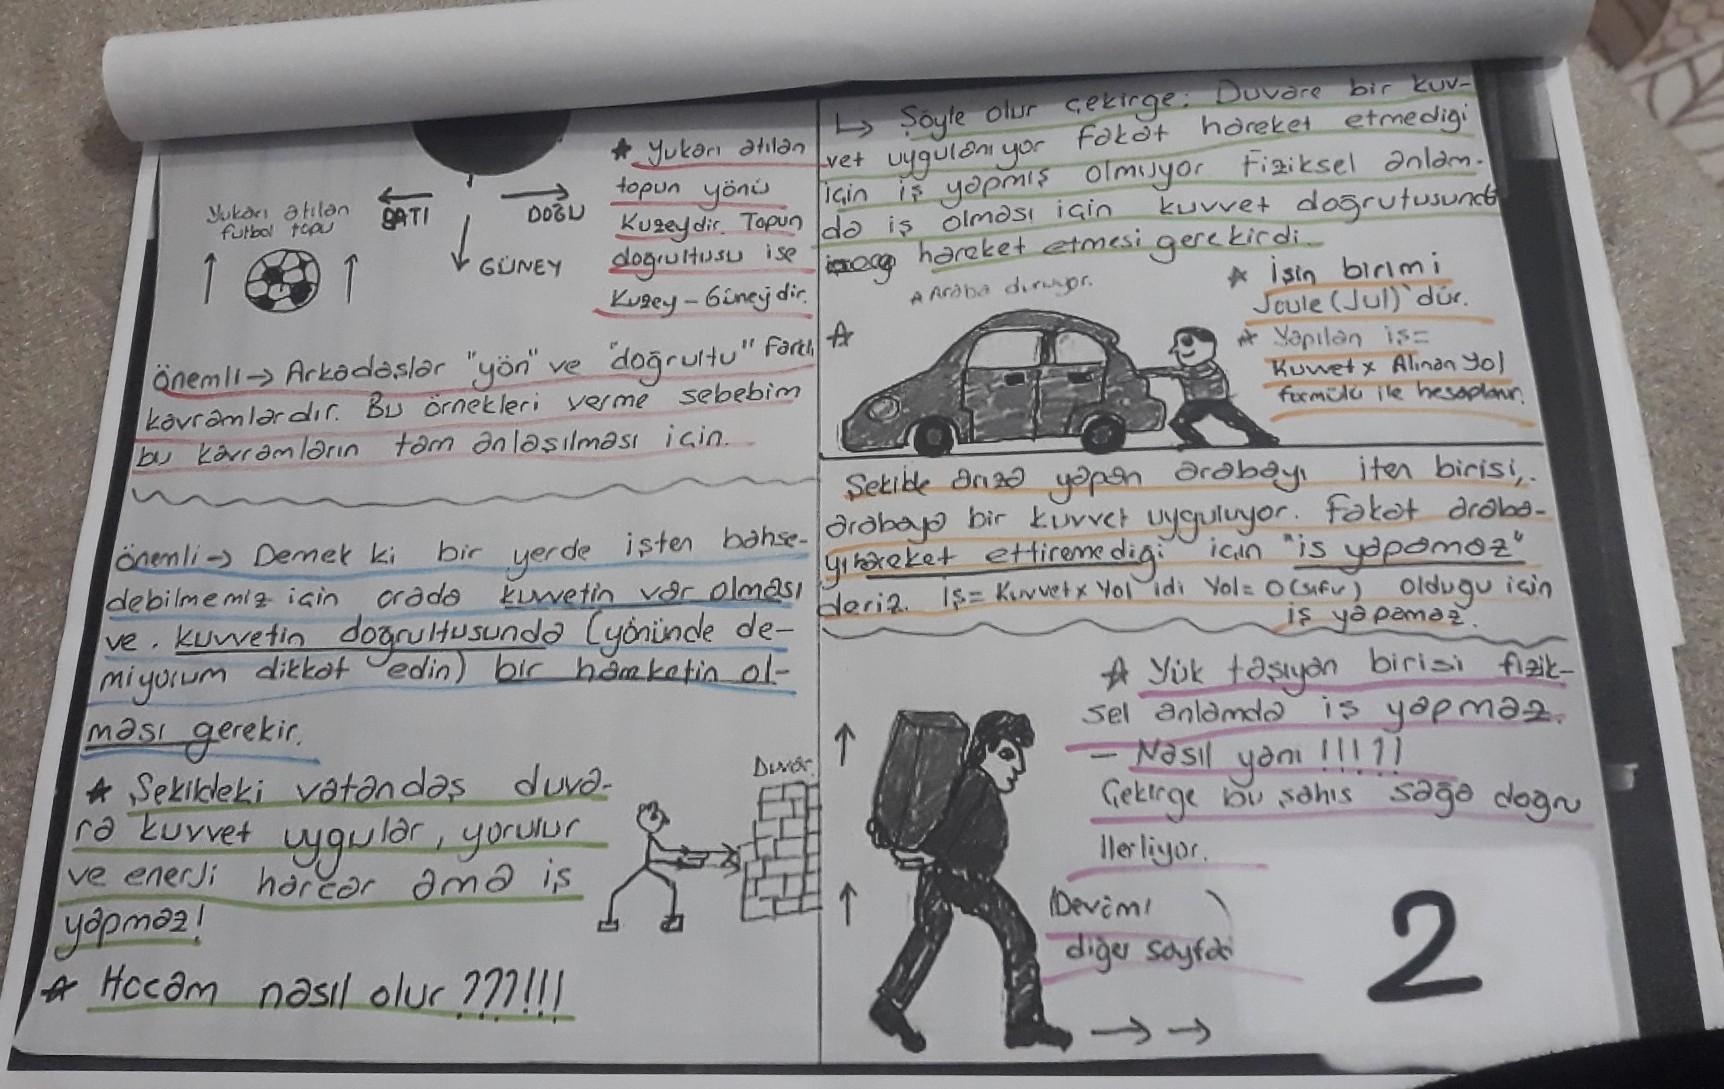 BATI
DOĞU
GÜNEY
Yukarı atılan
futbol topu
* Yukarı atılan
topun yönü
Kuzeydir. Topun
doğrultusu ise
Kuzey - Güneydir.
önemli → Arkadaşlar "yön" ve "doğrultu" farklı
kavramlardır. Bu örnekleri verme sebebim
bu kavramların tam anlaşılması için.
önemli → Demek ki bir yerde işten bahse-
debilmemiz için orada kuvvetin var olması
ve kuvvetin doğrultusunda (yönünde de-
miyorum dikkat edin) bir hareketin ol-
ması gerekir.
* Şekildeki vatandaş duva-
ra kuvvet uygular, yorulur
ve enerji harcar ama iş
yapmaz!
Duvar
* Hocam nasıl olur ???!!!
↳ Şöyle olur çekirge: Duvara bir kuv-
vet uygulanıyor fakat hareket etmediği
için iş yapmış olmuyor fiziksel anlam-
da iş olması için kuvvet doğrutusunda
hareket etmesi gerekirdi.
* Araba duruyor.
* işin birimi
Joule (Jul)'dür.
* Yapılan iş=
Kuvvet x Alınan yol
formülü ile hesaplanır.
Şekilde arıza yapan arabayı iten birisi,
arabaya bir kuvvet uyguluyor. Fakat araba-
yı hareket ettiremediği için "iş yapamaz"
deriz. İş= Kuvvet x Yol idi Yol= 0 (sıfır) olduğu için
iş yapamaz.
* Yük taşıyan birisi fizik-
sel anlamda iş yapmaz.
- Nasıl yani !!!??
Çekirge bu şahıs sağa doğru
ilerliyor.
(Devamı
diğer sayfada)
2